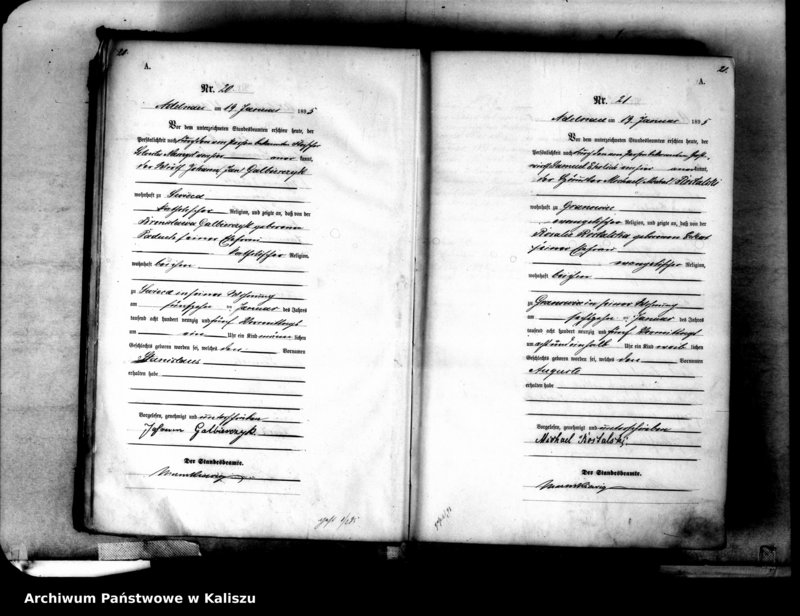 20.
A.
Nr. 20.
Adelnau am 19 Januar 1895
Vor dem unterzeichneten Standesbeamten erschien heute, der
Persönlichkeit nach
kannt,
der Wirth Johann Galbierczyk
wohnhaft zu Swieca
katholischer Religion, und zeigte an, daß von der
Bronislawa Galbierczyk geborenen
seiner Ehefrau
katholischer Religion,
wohnhaft bei ihm
zu Swieca in seiner Wohnung
am fünfzehn ten Januar des Jahres
tausend acht hundert neunzig und fünf Vormittags
um ein Uhr ein Kind männ lichen
Geschlechts geboren worden sei, welches den Vornamen
Stanislaus
erhalten habe
Vorgelesen, genehmigt und unterschrieben
Johann Galbierczyk
Der Standesbeamte.
21.
A.
Nr. 21
Adelnau am 19 Januar 1895
Vor dem unterzeichneten Standesbeamten erschien heute, der
Persönlichkeit nach
kannt,
der Michael Kostalski
wohnhaft zu Granowiec
evangelischer Religion, und zeigte an, daß von der
Rosalie Kostalska geborenen
seiner Ehefrau
evangelischer Religion,
wohnhaft bei ihm
zu Granowiec in seiner Wohnung
am sechszehn ten Januar des Jahres
tausend acht hundert neunzig und fünf Vormittags
um acht und einhalb Uhr ein Kind weib lichen
Geschlechts geboren worden sei, welches den Vornamen
Auguste
erhalten habe
Vorgelesen, genehmigt und unterschrieben
Michael Kostalski
Der Standesbeamte.
Archiwum Państwowe w Kaliszu